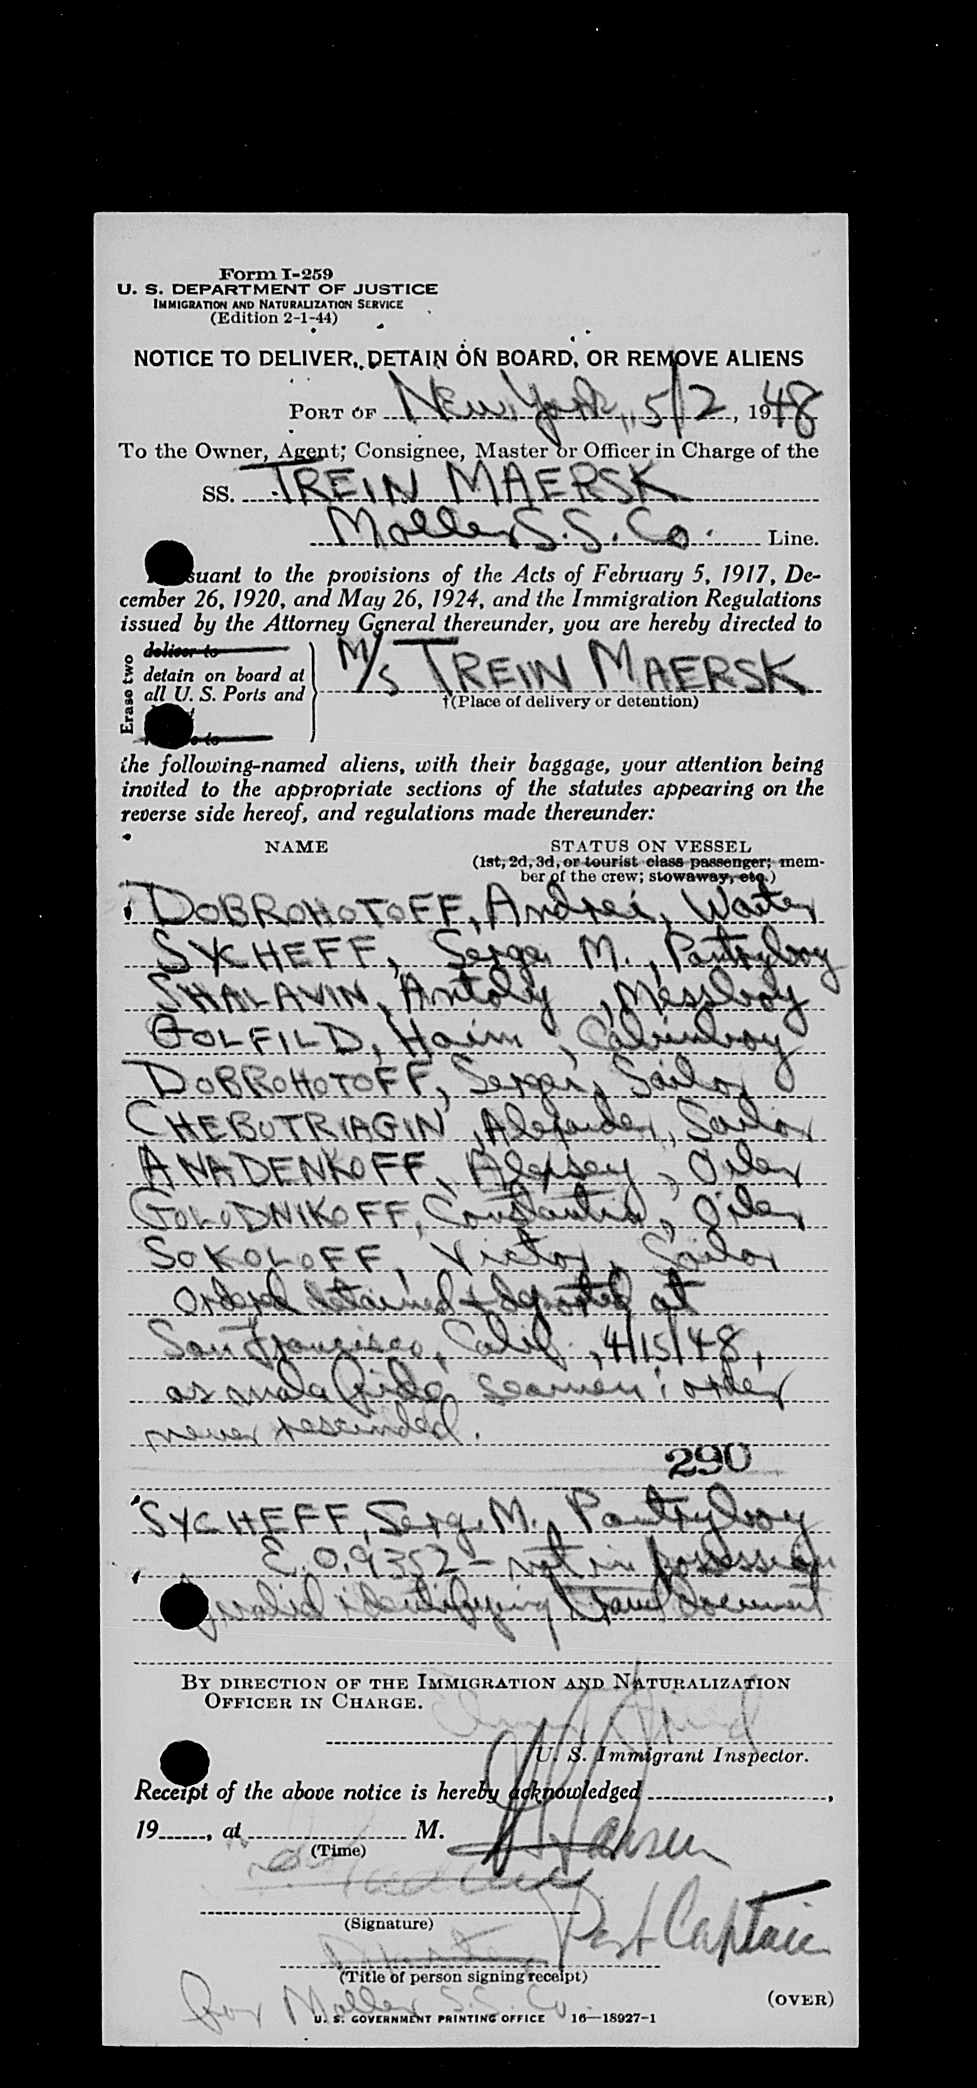 Form I-259
U. S. DEPARTMENT OF JUSTICE
IMMIGRATION AND NATURALIZATION SERVICE
(Edition 2-1-44)
NOTICE TO DELIVER, DETAIN ON BOARD, OR REMOVE ALIENS
PORT OF New York, 5/2, 1948
To the Owner, Agent, Consignee, Master or Officer in Charge of the
SS. TREIN MAERSK
Moller S.S. Co. Line.
suant to the provisions of the Acts of February 5, 1917, De-
cember 26, 1920, and May 26, 1924, and the Immigration Regulations
issued by the Attorney General thereunder, you are hereby directed to
Erase two
deliver to
detain on board at
all U. S. Ports and
to
M/S TREIN MAERSK
†(Place of delivery or detention)
the following-named aliens, with their baggage, your attention being
invited to the appropriate sections of the statutes appearing on the
reverse side hereof, and regulations made thereunder:
NAME STATUS ON VESSEL
(1st, 2d, 3d, or tourist class passenger; mem-
ber of the crew; stowaway, etc.)
DOBROHOTOFF, Andrei, Waiter
SYCHEFF, Serge M., Pantryboy
SHALAVIN, Antoly, Messboy
GOLFILD, Haim, Cabinboy
DOBROHOTOFF, Sergei, Sailor
CHEBUTRIAGIN, Alexander, Sailor
ANADENKOFF, Alexsey, Oiler
GOLODNIKOFF, Constantin, Oiler
SOKOLOFF, Victor, Sailor
Ordered detained & deported at
San Francisco, Calif., 4/15/48,
as mala fide seamen; order
never rescinded.
290
SYCHEFF, Serge M., Pantryboy
E.O. 9352 - not in possession
of valid identifying travel document
BY DIRECTION OF THE IMMIGRATION AND NATURALIZATION
OFFICER IN CHARGE.
U. S. Immigrant Inspector.
Receipt of the above notice is hereby acknowledged ,
19 , at M.
(Time)
Hansen
(Signature)
Port Captain
(Title of person signing receipt)
for Moller S.S. Co.
(OVER)
U. S. GOVERNMENT PRINTING OFFICE 16—18927-1